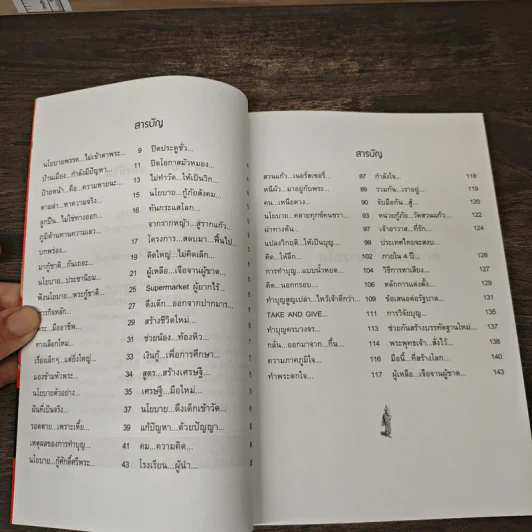 สารบัญ
นโยบายพรรค...ไม่เข้าตาพระ... 9
บ้านเมือง...กำลังมีปัญหา 11
ป้ายหน้า...คือ...ความหายนะ... 13
ตามล่า...หาความจริง... 15
ลูกปืน...ไม่ใช่ทางออก... 16
ภูมิต้านทานความเลว...
บทพร่อง... 17
มากู้ชาติ...กันเถอะ... 19
นโยบาย...ประชานิยม 21
ฟังนโยบาย...พระกู้ชาติ 23
ภารกิจหลัก 25
พระ...มืออาชีพ 27
ทางเลือกใหม่ 29
เรื่องเล็กๆ...แต่ยิ่งใหญ่... 31
มองข้ามหัวพระ... 33
นโยบายตัวอย่าง... 34
ฝันที่เป็นจริง... 35
รอดตาย...เพราะเหี้ย... 37
เหตุผลของการทำบุญ... 39
นโยบาย...กู้ศักดิ์ศรีพระ... 41
43
ปิดประตูชั่ว...
ปิดโอกาสมัวหมอง...
ไม่ทำวัด...ให้เป็นวิก...
นโยบาย...กู้ภัยสังคม...
ทันกระแสโลก...
จากรากหญ้า...สู่รากแก้ว...
โครงการ...สลบมา...ฟื้นไป...
คิดใหญ่...ไม่คิดเล็ก...
ผู้เหลือ...เจือจานผู้ขาด...
Supermarket ผู้ยากไร้...
ดึงเด็ก...ออกจากปากมาร...
สร้างชีวิตใหม่...
ช่วยน้อง...ท้องหิว...
เงินกู้...เพื่อการศึกษา...
สูตร...สร้างเศรษฐี...
เศรษฐี...มือใหม่...
นโยบาย...ดึงเด็กเข้าวัด...
แก้ปัญหา...ด้วยปัญญา...
คม...ความคิด...
โรงเรียน...ผู้นำ...
สารบัญ
สวนแก้ว...เนอร์สเซอรี่... 87
หนีผัว...มาอยู่กับพระ... 89
คน...เหนือดวง... 90
นโยบาย...คลายทุกข์คนชรา... 93
ฝ่าทางตัน... 97
แปลงวิกฤติ...ให้เป็นบุญ... 99
คิด...ให้ลึก... 102
การทำบุญ...แบบน้ำหยด... 104
คิด...นอกกรอบ... 107
ทำบุญสูญเปล่า...ไหว้เจ้าดีกว่า... 109
TAKE AND GIVE... 111
ทำบุญครบวงจร... 113
กลั่น...ออกมาจาก...กึ๋น... 114
ความภาคภูมิใจ... 116
ทำพระตกใจ... 117
กำลังใจ... 118
รวมกัน...เราอยู่... 119
จับมือกัน...สู้... 120
หน่วยกู้ภัย...วัดสวนแก้ว... 122
เจ้าอาวาส...ที่รัก... 124
ประเทศไทยจะสงบ...
ภายใน 4 ปี... 126
วิธีการหาเสียง... 127
หลักการแต่งตั้ง... 129
ข้อเสนอต่อรัฐบาล... 131
การวิจัยบุญ... 135
ช่วยกันสร้างบรรทัดฐานใหม่... 137
พระพุทธเจ้า...สั่งไว้... 139
มือนี้...ที่สร้างโลก... 141
ผู้เหลือ...เจือจานผู้ขาด... 143